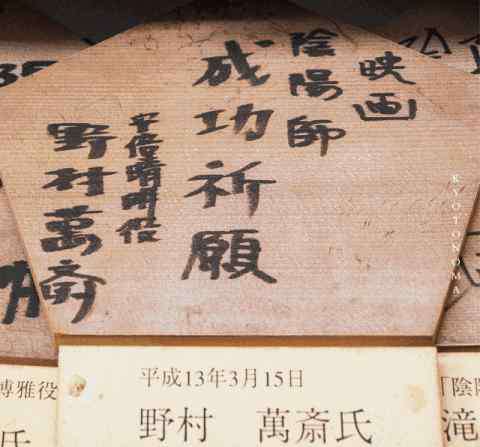 映画
陰陽師
成功祈願
安倍晴明役
野村萬斎
平成13年3月15日
野村 萬斎氏
博雅役
氏
「陰
滝
KYOTONOMA